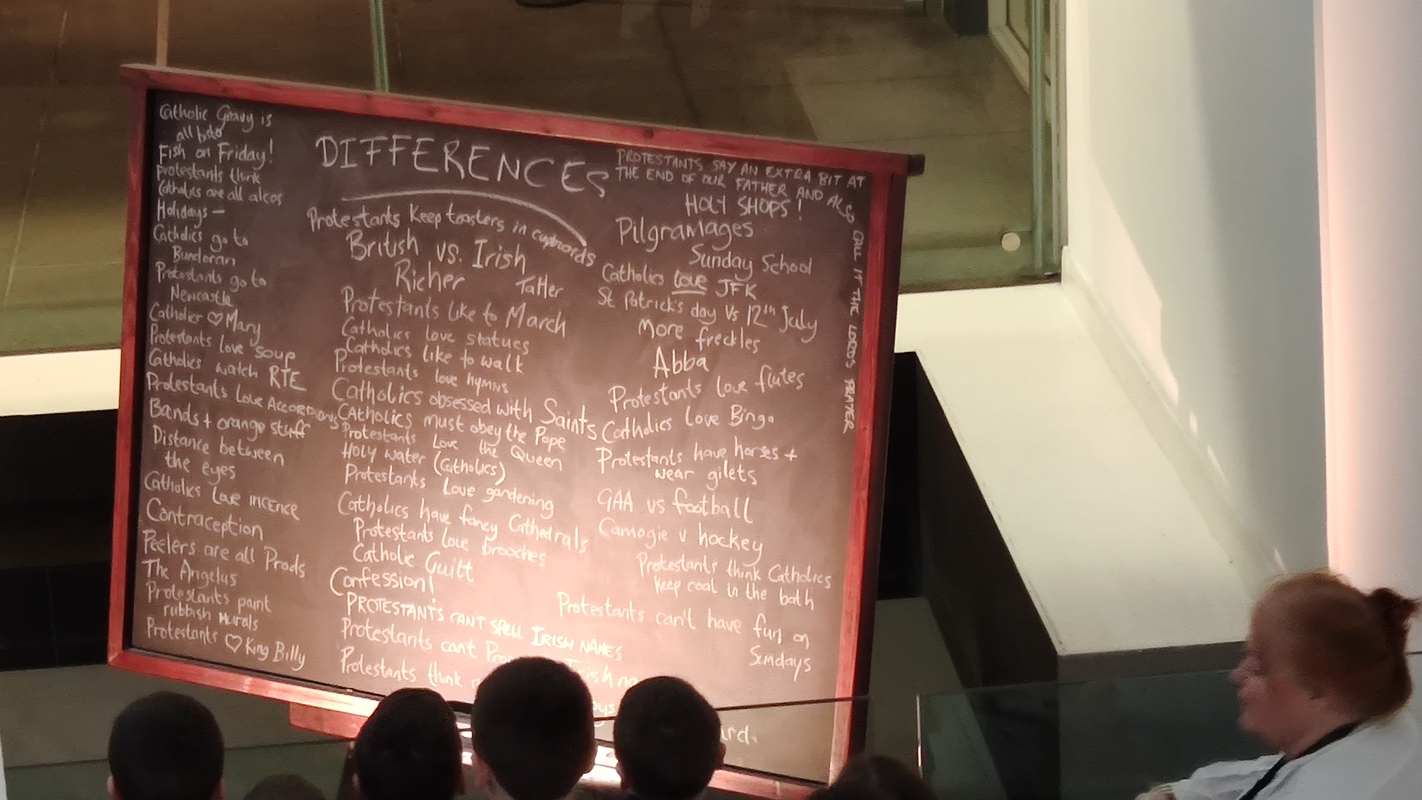 DIFFERENCES
Catholic Gravy is
all bisto
Fish on Friday!
Protestants think
Catholics are all alcos
Holidays -
Catholics go to
Bundoran
Protestants go to
Newcastle
Catholics ♡ Mary
Protestants love soup
Catholics watch RTE
Protestants Love Accordions
Bands + orange stuff
Distance between
the eyes
Catholics love incence
Contraception
Peelers are all Prods
The Angelus
Protestants paint
rubbish murals
Protestants ♡ King Billy
Protestants Keep toasters in cupboards
British vs. Irish
Richer Taller
Protestants like to March
Catholics love statues
Catholics like to walk
Protestants love hymns
Catholics obsessed with Saints
Catholics must obey the Pope
Protestants Love the Queen
Holy water (Catholics)
Protestants Love gardening
Catholics have fancy Cathedrals
Protestants Love brooches
Catholic Guilt
Confession!
PROTESTANTS CAN'T SPELL IRISH NAMES
Protestants can't
Protestants think
PROTESTANTS SAY AN EXTRA BIT AT
THE END OF OUR FATHER AND ALSO CALL IT THE LORDS PRAYER
HOLY SHOPS!
Pilgramages
Sunday School
Catholics love JFK
St Patrick's day Vs 12th July
More freckles
Abba
Protestants love flutes
Catholics love Bingo
Protestants have horses +
wear gilets
GAA vs football
Camogie v hockey
Protestants think Catholics
keep coal in the bath
Protestants can't have fun on
Sundays